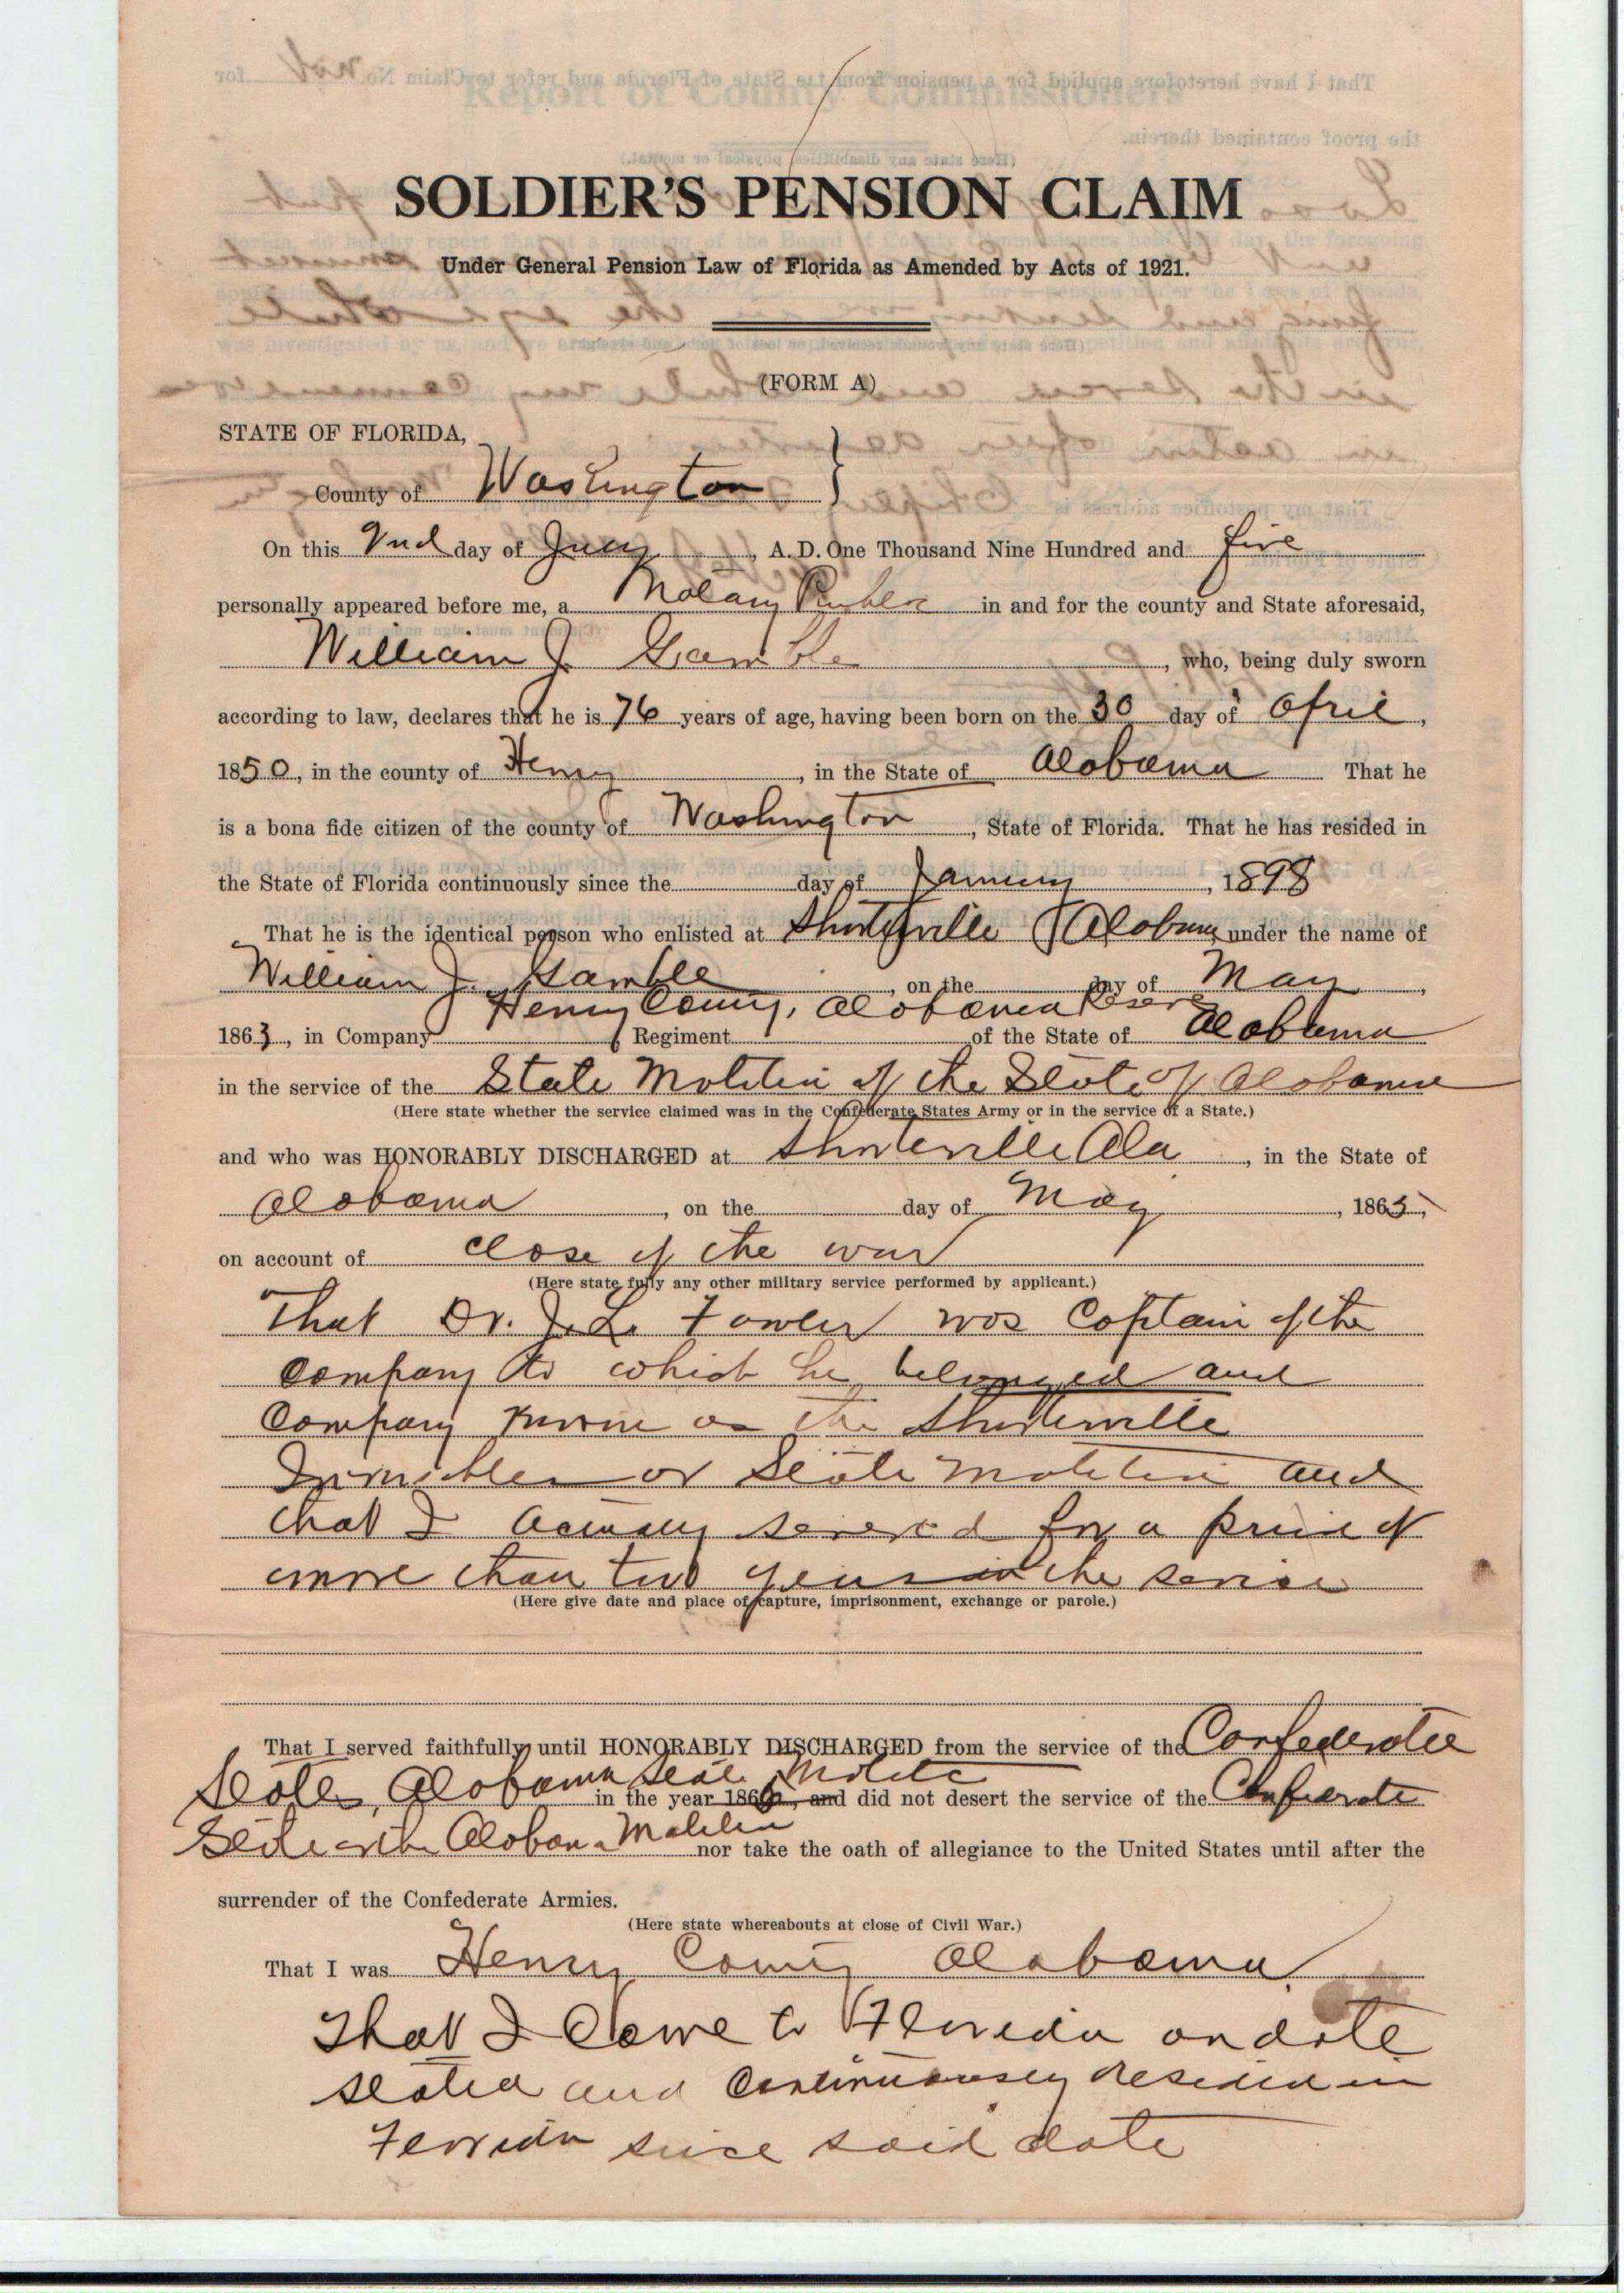 SOLDIER'S PENSION CLAIM
Under General Pension Law of Florida as Amended by Acts of 1921.
(FORM A)
STATE OF FLORIDA,
County of Washington }
On this 2nd day of July, A. D. One Thousand Nine Hundred and five
personally appeared before me, a Notary Public in and for the county and State aforesaid,
William J. Gamble, who, being duly sworn
according to law, declares that he is 76 years of age, having been born on the 30 day of April,
1850, in the county of Henry, in the State of Alabama That he
is a bona fide citizen of the county of Washington, State of Florida. That he has resided in
the State of Florida continuously since the day of January, 1898
That he is the identical person who enlisted at Shorterville Alabama, under the name of
William J. Gamble, on the day of May,
Henry County, Alabama Reserve
1863, in Company Regiment of the State of Alabama
in the service of the State Militia of the State of Alabama
(Here state whether the service claimed was in the Confederate States Army or in the service of a State.)
and who was HONORABLY DISCHARGED at Shorterville Ala, in the State of
Alabama, on the day of May, 1865,
on account of close of the war
(Here state fully any other military service performed by applicant.)
That Dr. J. L. Fowler was Captain of the
Company to which he belonged and
Company known as the Shorterville
Invincibles or State Militia and
that I actually served for a period of
more than two years in the service
(Here give date and place of capture, imprisonment, exchange or parole.)
That I served faithfully until HONORABLY DISCHARGED from the service of the Confederate
States, Alabama State Militia
in the year 1865, and did not desert the service of the Confederate
State or the Alabama Militia nor take the oath of allegiance to the United States until after the
surrender of the Confederate Armies.
(Here state whereabouts at close of Civil War.)
That I was Henry County Alabama
That I Came to Florida on date
stated and Continuously resided in
Florida since said date